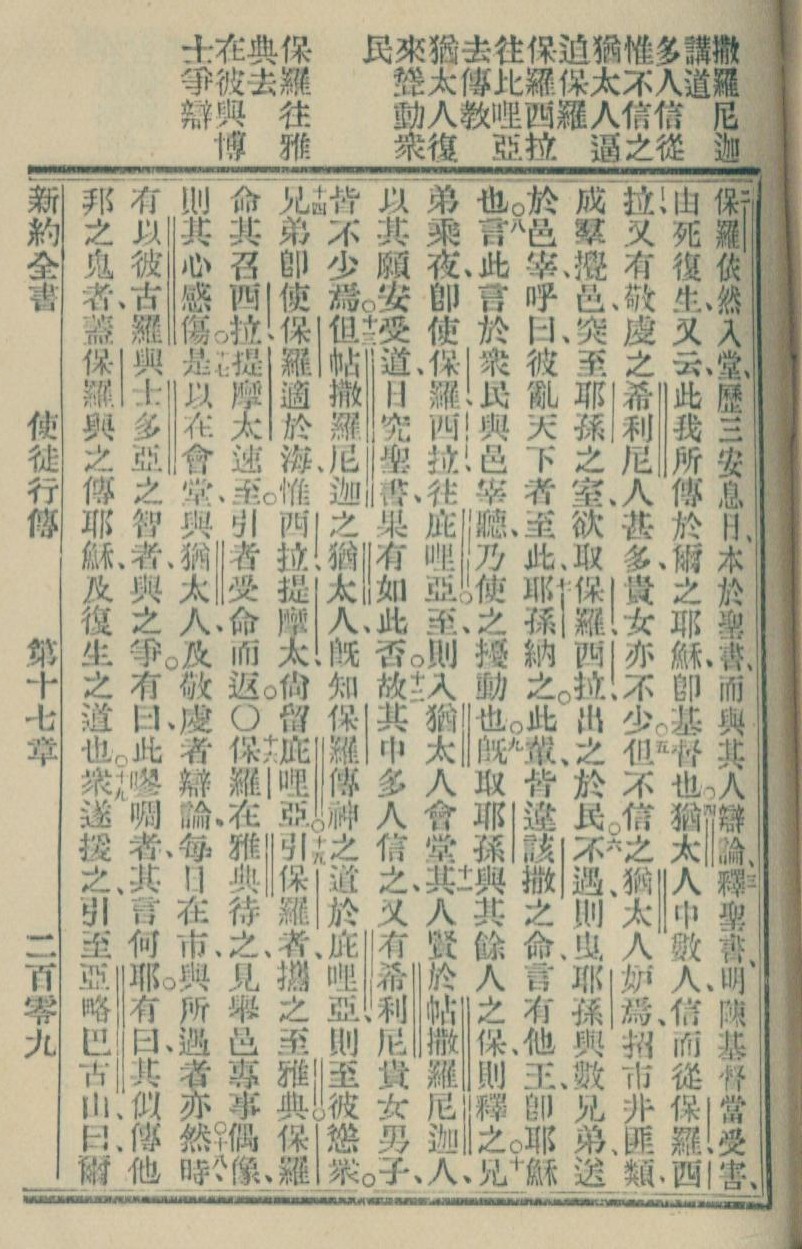 撒羅尼迦
講道
多人信從
惟不信之
猶太人逼
迫保羅
保羅西拉
往比哩亞
去傳教
猶太人復
來聳動衆
民
保羅往雅
典去
在彼與博
士爭辯
二保羅依然入堂、歷三安息日、本於聖書、而與其人辯論、三釋聖書、明陳基督當受害、
由死復生、又云、此我所傳於爾之耶穌、卽基督也。四猶太人中數人、信而從保羅、西
拉、又有敬虔之希利尼人甚多、貴女亦不少。五但不信之猶太人妒焉、招市井匪類、
成羣攪邑、突至耶孫之室、欲取保羅、西拉、出之於民。六不遇、則曳耶孫與數兄弟、送
於邑宰、呼曰、彼亂天下者至此、七耶孫納之。此輩皆違該撒之命、言有他王、卽耶穌
也。八言此言於衆民與邑宰聽、乃使之擾動也。九旣取耶孫與其餘人之保、則釋之。十兄
弟乘夜、卽使保羅、西拉、往庇哩亞。至、則入猶太人會堂。十一其人賢於帖撒羅尼迦人、
以其願安受道、日究聖書、果有如此否。十二故其中多人信之、又有希利尼貴女男子、
皆不少焉。十三但帖撒羅尼迦之猶太人、旣知保羅傳神之道於庇哩亞、則至彼慫衆。
十四兄弟卽使保羅適於海、惟西拉、提摩太、尙留庇哩亞。十五引保羅者、攜之至雅典。保羅
命其召西拉、提摩太速至。引者受命而返。〇十六保羅在雅典待之、見舉邑專事偶像、
則其心感傷。十七是以在會堂、與猶太人、及敬虔者辯論、每日在市、與所遇者亦然。十八時、
有以彼古羅與士多亞之智者、與之爭。有曰、此嘐啁者、其言何耶。有曰、其似傳他
邦之鬼者、蓋保羅與之傳耶穌、及復生之道也。十九衆遂援之、引至亞略巴古山、曰、爾
新約全書 使徒行傳 第十七章 二百零九